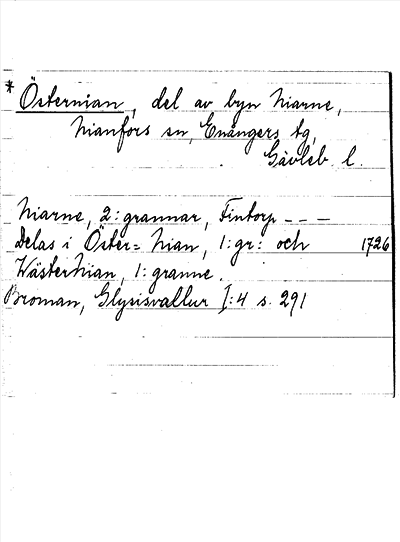 * Östernian, del av byn Niarne,
Nianfors sn, Enångers tg,
Gävleb. l.
Niarne, 2: grannar, Fintorp - - -
Delas i Öster= Nian, 1: gr: och 1726
WästerNian, 1: granne.
Broman, Glysisvallur I:4 s. 291